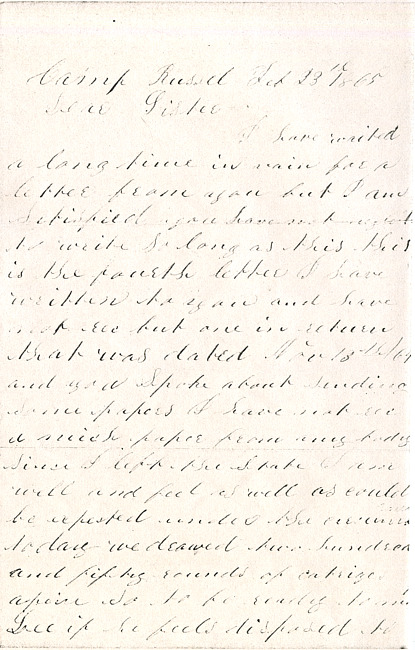 Camp Russel Feb 23rd 1865
Dear Sister
I have waited
a long time in vain for a
letter from you but I am
satisfied you have not
to write so long as this this
is the fourth letter I have
written to you and have
not rec but one in return
that was dated Nov 18th/64
and you spoke about sending
some papers I have not rec
a paper from any body
since I left the State I am
well and feel as well as could
be expested under the
today we drawed two hundred
and fifty rounds of catriges
apiece so to be ready to
Lee if he feels disposed to